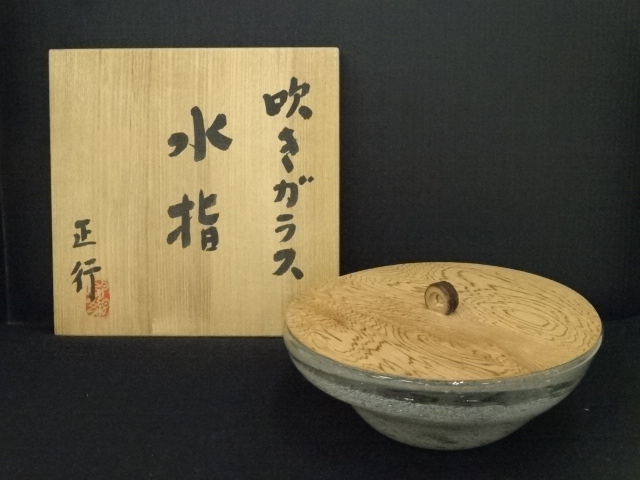 吹きガラス
水指
正行